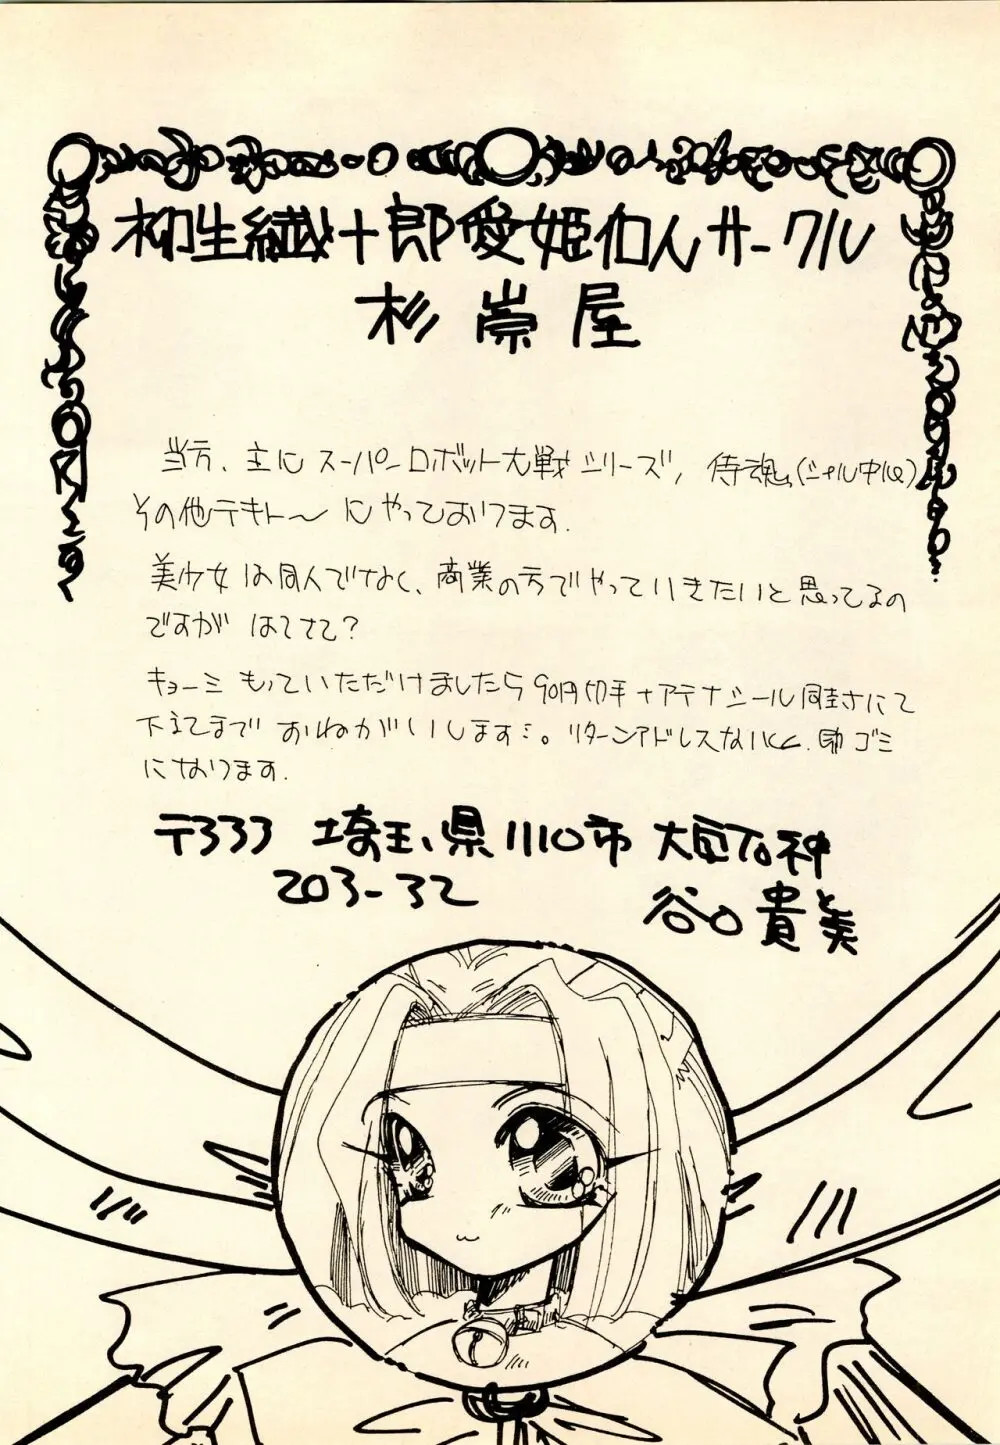 柳生繊十郎愛姫個人サークル
杉崇屋
当方、主に スーパーロボット大戦シリーズ、侍魂、(シャル中心)
その他テキト〜 にやっております.
美少女 は同人でなく、商業の方でやっていきたいと思ってるの
ですが はてさて?
キョーミ もっていただけましたら 90円切手+アテナシール同封にて
下記まで おねがいします。リターンアドレスないと 即ゴミ
になります.
〒333 埼玉県川口市
203-32 谷口貴と美